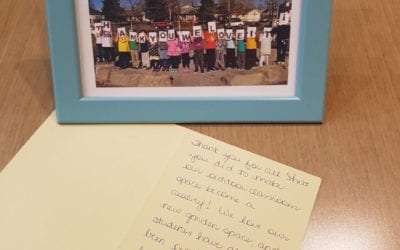 THANK YOU WE LOVE IT !
Thank you for all that
you did to make
our outdoor classroom
space become a
reality! We love our
new garden space and
students have
been